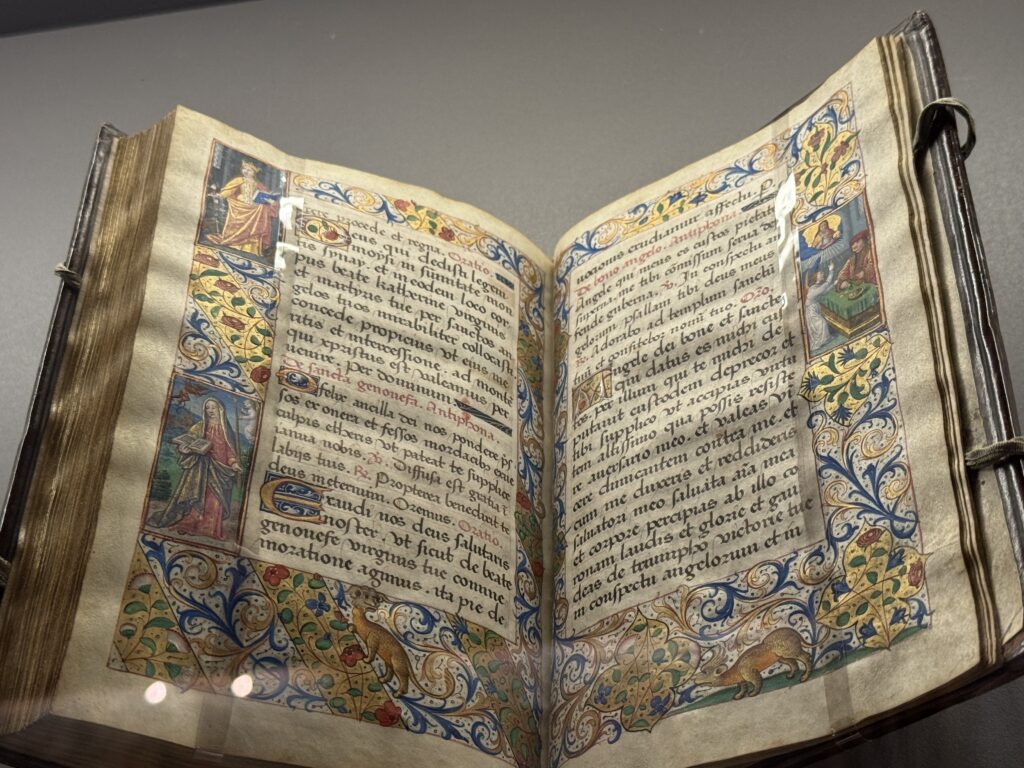 procede et regna. Oratio.
eus qui dedisti legem
moysi in summitate mo
tis synay. et in eodem loco cor
pus beate katherine virginis
et martyris tue per sanctos an
gelos tuos mirabiliter collocasti
concede propicius. vt eius me
ritis et intercessione. ad monte
qui xpristus est valeamus per
uenire. Per dominum
De sancta genouefa. Antiphona.
O felix ancilla dei nos pondere
sos exonera et fessos mordacibus
culpis etheris vt pateat te supplice
ianua nobis. ℣. Diffusa est gratia i
labijs tuis. ℟. Propterea benedixit te
deus in eternum. Oremus. Oratio.
Exaudi nos deus salutaris
noster. vt sicut de beate
genouefe virginis tue comme
moratione agimus. ita pie de
uotionis erudiamur affectu. P
De bono angelo. Antiphona.
Angele qui meus es custos pietate
superna. me tibi comissum serua de
fende guberna. ℣. In conspectu an
gelorum psallam tibi deus meus
℟. Adorabo ad templum sanctum
tuum et confitebor nomini tuo. Oro.
Angele dei bone et sancte
qui datus es michi des
tos per illum qui te michi de
putauit custodem deprecor et
tibi supplico vt accipias virtu
tem altissimo qua possis resiste
re aduersario meo. et valeas vin
cere dimicantem contra me. et
cum me duxeris et reddideris
saluatori meo saluata aĩa mea
et corpore percipias ab illo co
ronam laudis et glorie et gau
deas de triumpho victorie tue
in conspectu angelorum et in